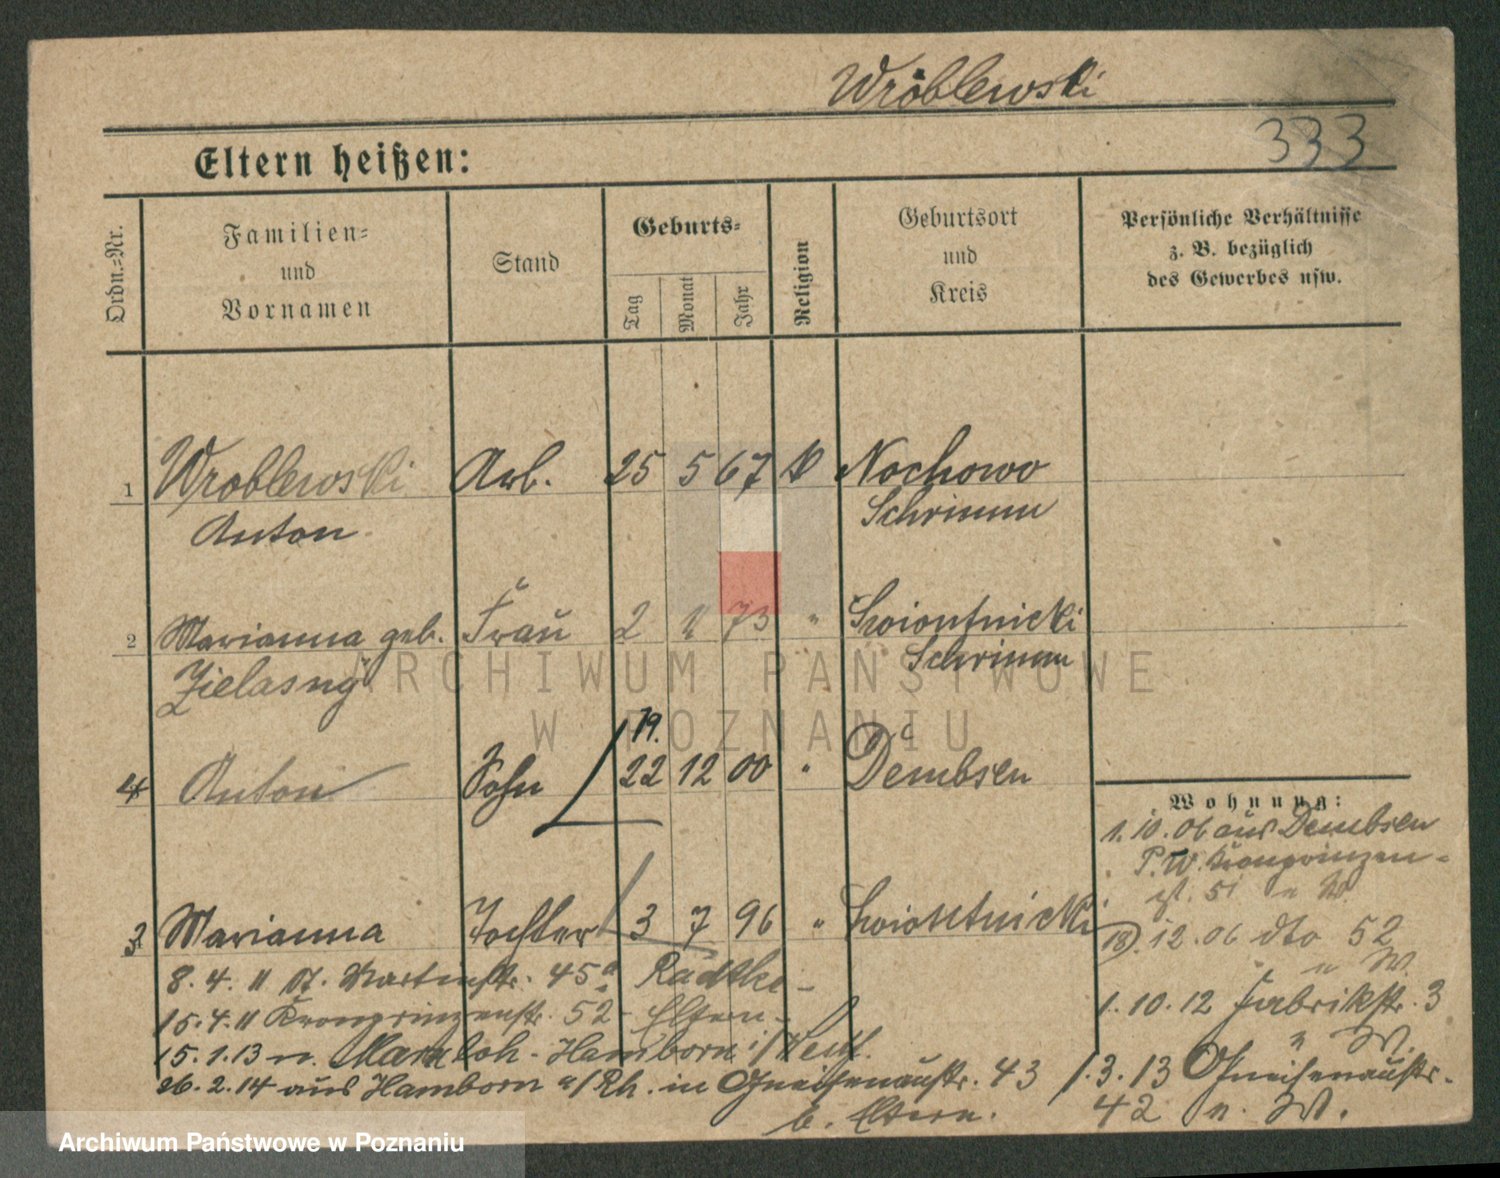 Wröblewski
333
Eltern heißen:
Ordn.-Nr.
Familien-
und
Vornamen
Stand
Geburts-
Tag
Monat
Jahr
Religion
Geburtsort
und
Kreis
Persönliche Verhältnisse
z. B. bezüglich
des Gewerbes usw.
1 Wroblewski Arb. 25 5 67 k Nochowo
Anton Schrimm
2 Marianna geb. Frau 2 73 " Swiontnicki
Zielasny Schrimm
19.
4 Anton Sohn 22 12 00 " Dembsen
Wohnung:
1. 10. 06 aus Dembsen
P. W. Kronprinzen-
st. 51 n W
3 Marianna Tochter 3 7 96 " Swiontnicki
18. 12. 06 dto 52
n W.
8. 4. 11 St. Martinstr. 45a Radtke -
1. 10. 12 Fabrikstr. 3
15. 4. 11 Kronprinzenstr. 52 - Eltern -
" W.
15. 1. 13 n. Hamborn i/Westf.
26. 2. 14 aus Hamborn a/Rh. in Gneisenaustr. 43
b. Eltern.
1. 3. 13 Gneisenaustr.
42 n. W.
ARCHIWUM PAŃSTWOWE
W POZNANIU
Archiwum Państwowe w Poznaniu